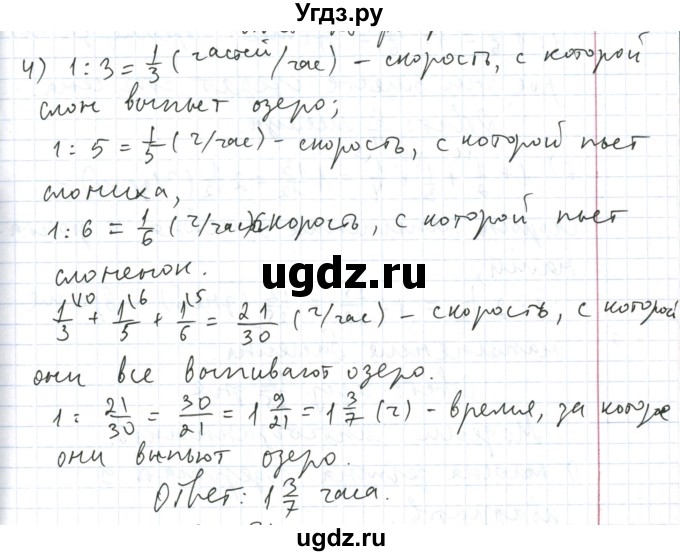 Угдз.ру
4) 1 : 3 = 1/3 (частей/час) – скорость, с которой
слон выпьет озеро;
1 : 5 = 1/5 (ч/час) – скорость, с которой пьет
слониха,
1 : 6 = 1/6 (ч/час) скорость, с которой пьет
слоненок.
ugdz.ru
1/3 \10 + 1/5 \6 + 1/6 \5 = 21/30 (ч/час) – скорость, с которой
они все выпивают озеро.
1 : 21/30 = 30/21 = 1 9/21 = 1 3/7 (ч) – время, за которое
они выпьют озеро.
Ответ: 1 3/7 часа.
ugdz.ru